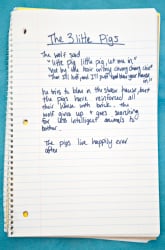 The 3 little Pigs
The wolf said
"Little pig, little pig, let me in"
"Not by the hair on my chinny chinny chin"
"Then I'll huff, and I'll puff and blow your house
in!"
he tries to blow in the straw house, but
the pigs have reinforced all
their houses with brick. the
wolf gives up & goes searching
for less intelligent animals to
bother.
The pigs live happily ever
after